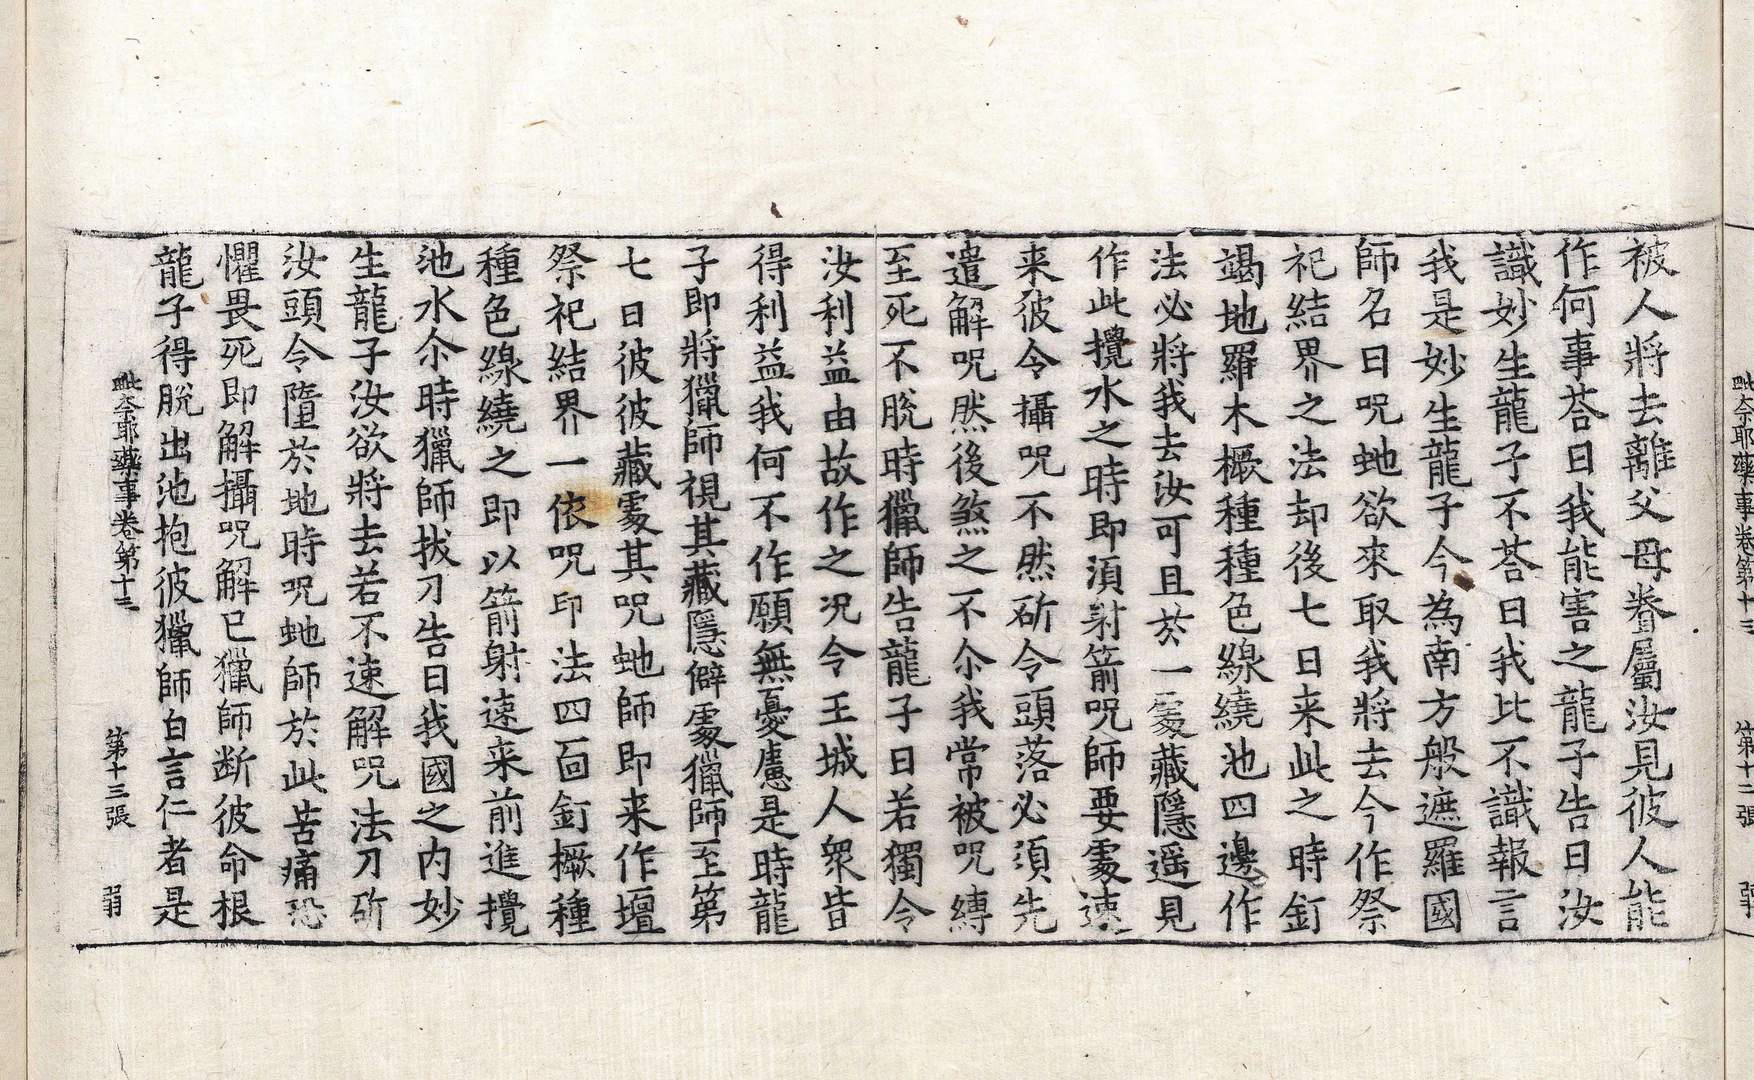 被人將去離父母眷屬汝見彼人能
作何事荅曰我能害之龍子告曰汝
識妙生龍子不荅曰我比不識報言
我是妙生龍子今為南方般遮羅國
師名曰呪虵欲來取我將去今作祭
祀結界之法却後七日来此之時釘
竭地羅木橛種種色線繞池四邊作
法必將我去汝可且於一處藏隱遥見
作此攪水之時即湏射箭呪師要處速
来彼令攝呪不然斫令頭落必湏先
遣解呪然後煞之不尒我常被呪縛
至死不脫時獵師告龍子曰若獨令
汝利益由故作之况今王城人衆皆
得利益我何不作願無憂慮是時龍
子即將獵師視其藏隱僻處獵師至第
七日彼彼藏處其呪虵師即来作壇
祭祀結界一依呪印法四面釘橛種
種色線繞之即以箭射速来前進攪
池水尒時獵師拔刀告曰我國之内妙
生龍子汝欲將去若不速解呪法刀斫
汝頭令墮於地時呪虵師於此苦痛恐
懼畏死即解攝呪解已獵師断彼命根
龍子得脫出池抱彼獵師白言仁者是
毗奈耶藥事卷第十三　第十三張